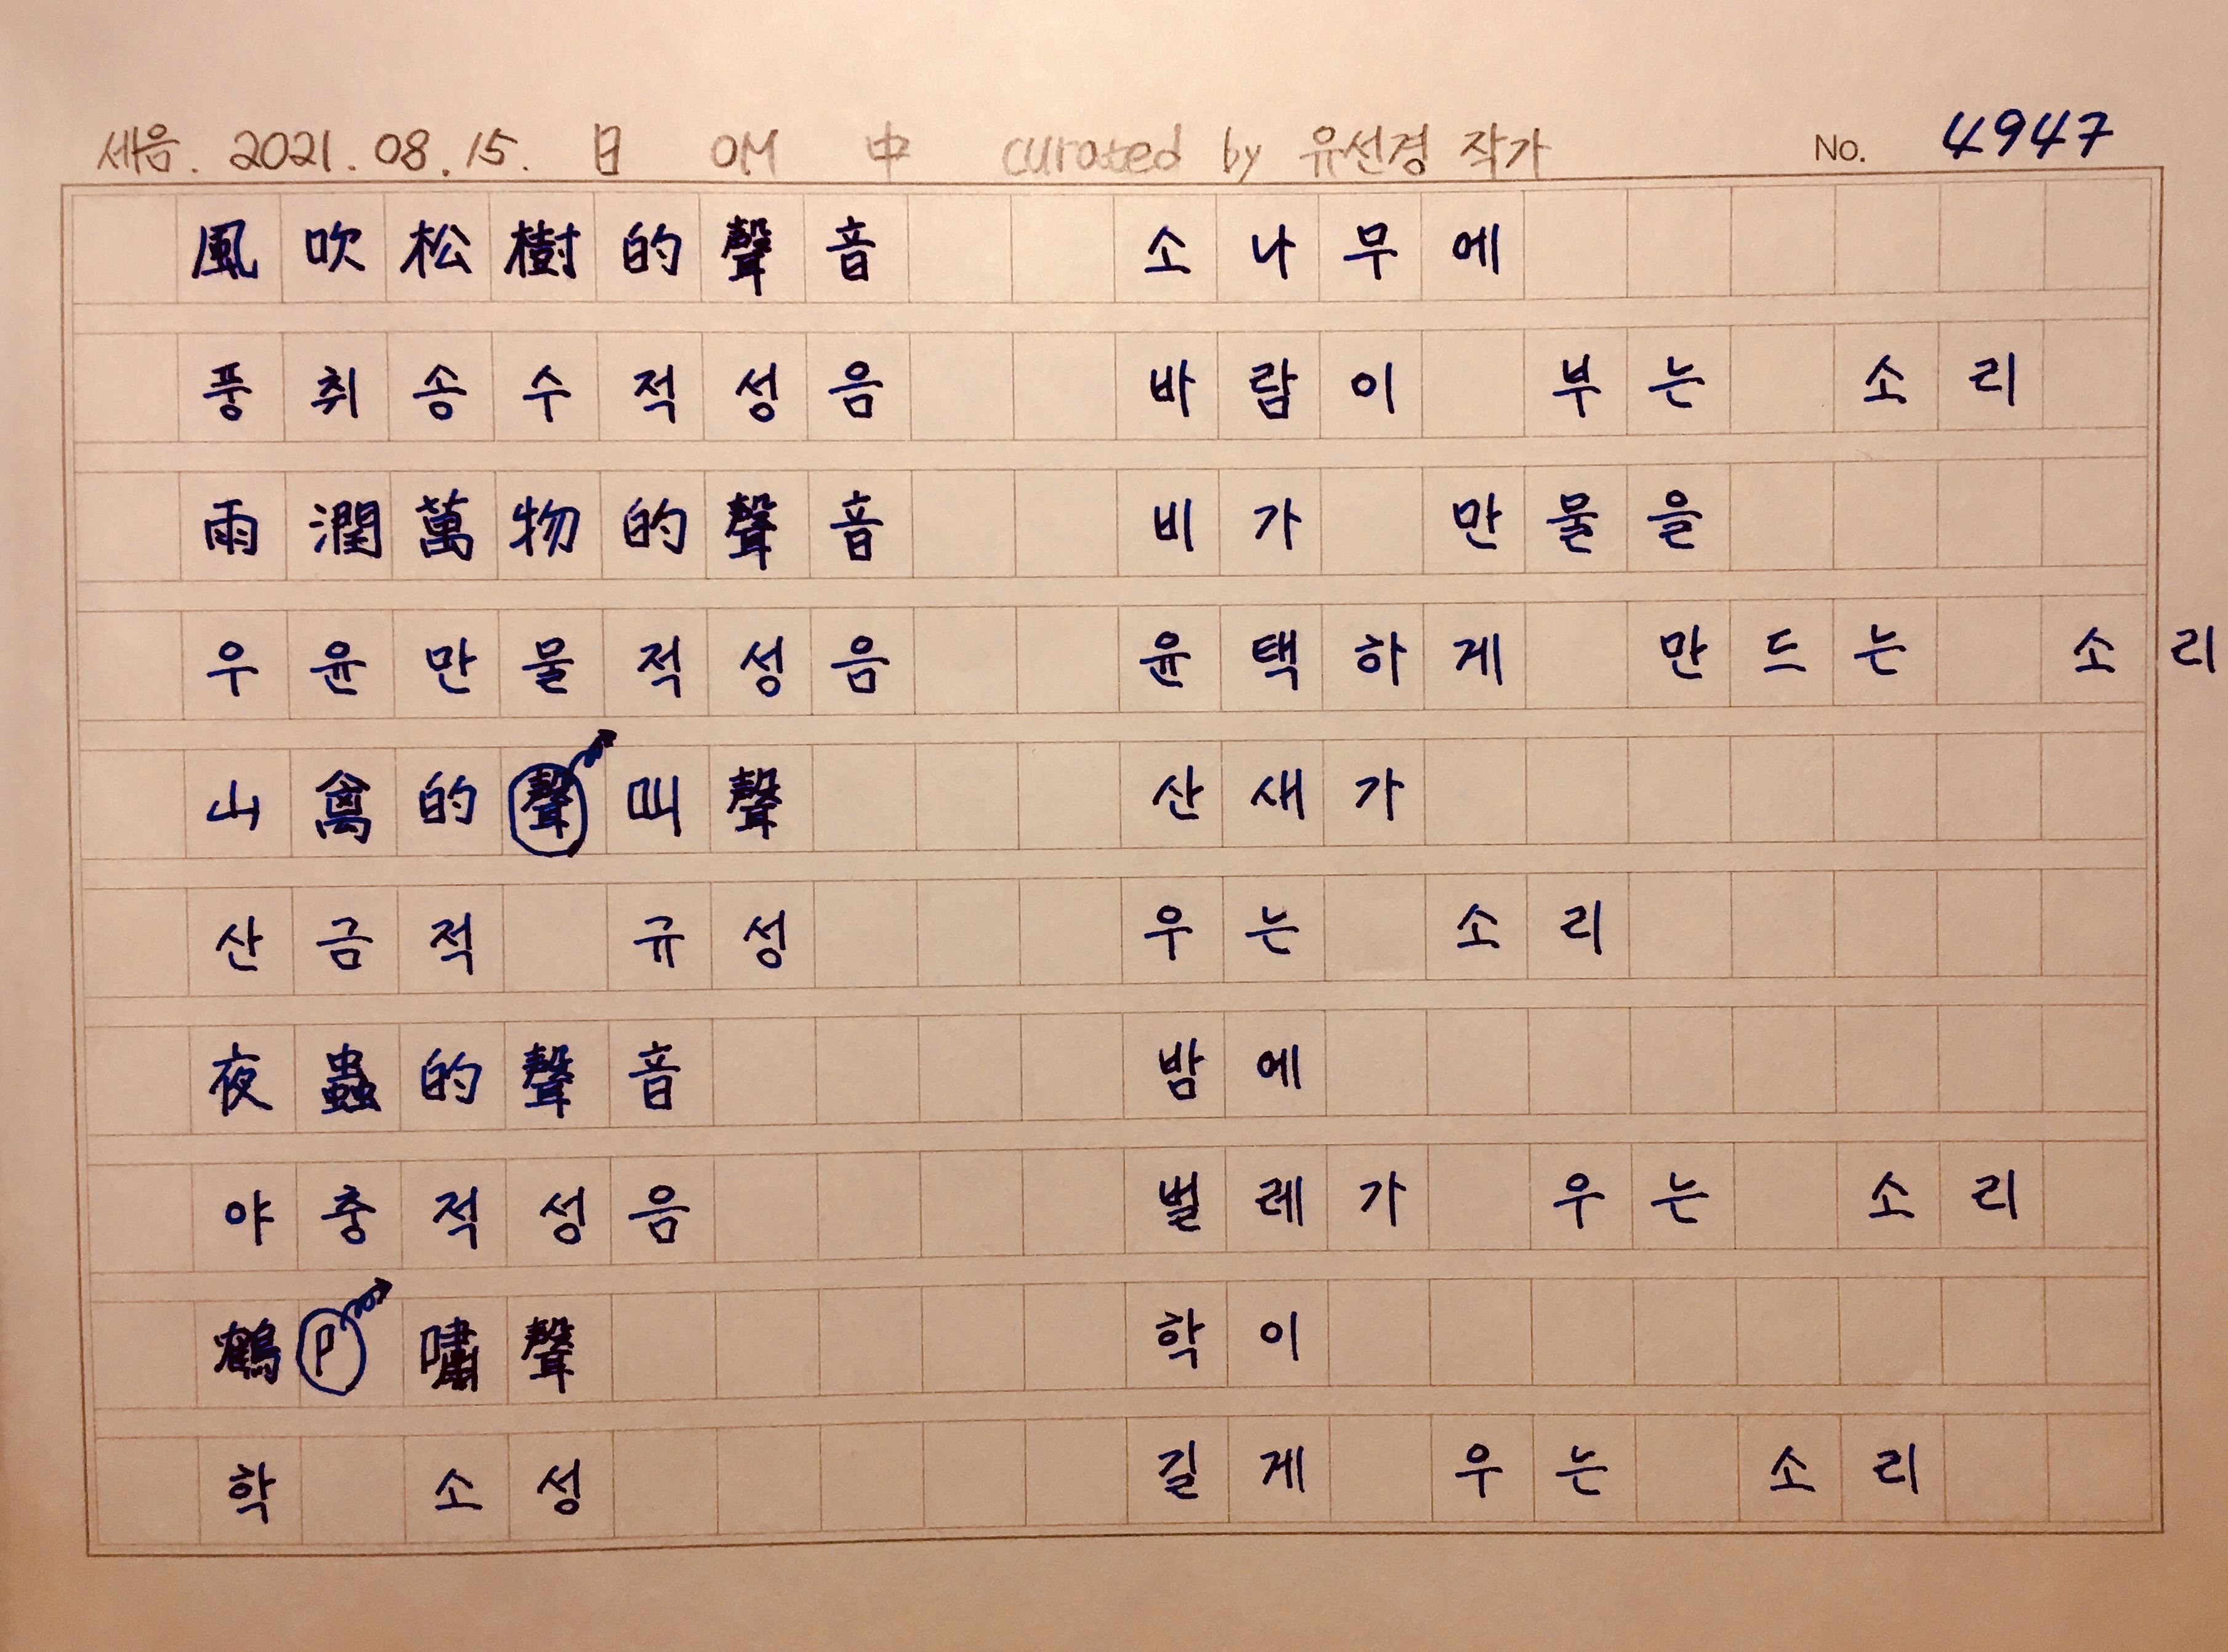 세음. 2021. 08. 15. 日 OM 中 curated by 유선경 작가 No. 4947
風吹松樹的聲音 소나무에
풍취송수적성음 바람이 부는 소리
雨潤萬物的聲音 비가 만물을
우윤만물적성음 윤택하게 만드는 소리
山禽的聲叫聲 산새가
산금적 규성 우는 소리
夜蟲的聲音 밤에
야충적성음 벌레가 우는 소리
鶴 嘯聲 학이
학 소성 길게 우는 소리